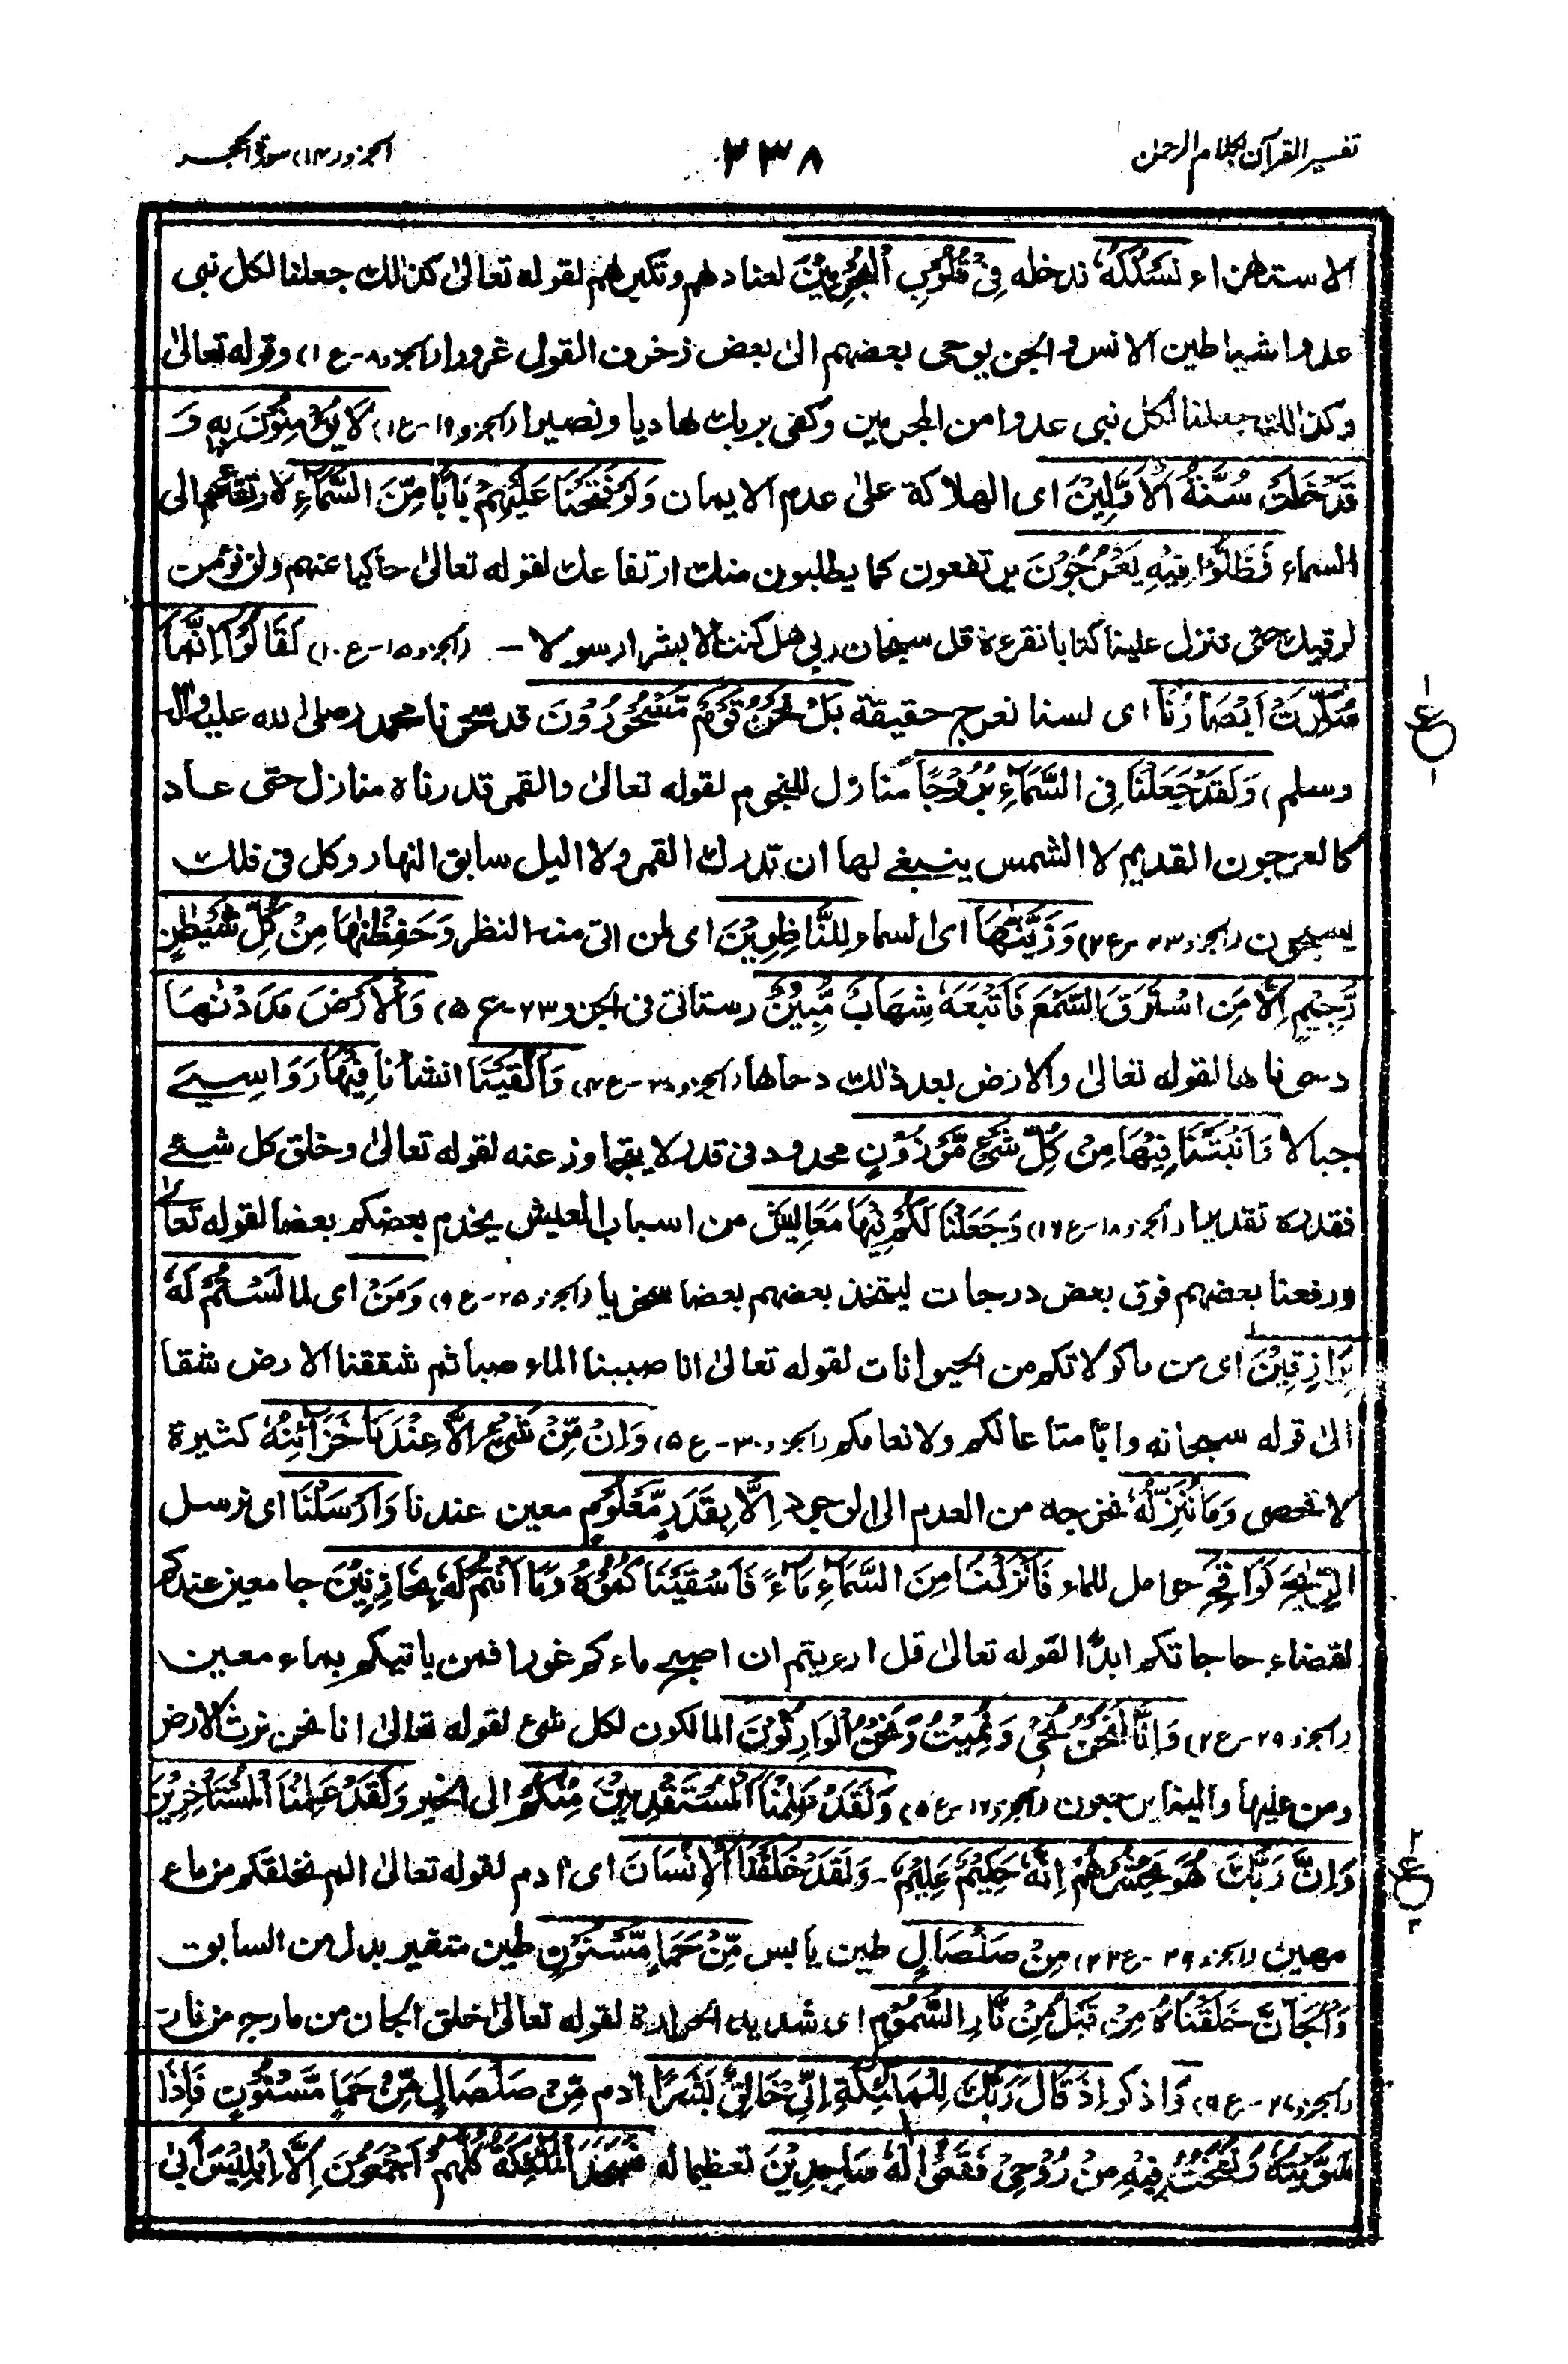 تفسير القرآن بكلام الرحمن
٢٣٨
الجزو (١٤) سورة الحجر
الاستهزاء نَسْلُكُهٗ ندخله فِىْ قُلُوْبِ الْمُجْرِمِيْنَ لعنادهم وتكبرهم لقوله تعالىٰ كذالك جعلنا لكل نبى
عدوا شياطين الانس والجن يوحى بعضهم الىٰ بعض زخرف القول غرورا (الجزو ٨-ع ١) وقوله تعالىٰ
وكذالك جعلنا لكل نبى عدوا من المجرمين وكفى بربك هاديا ونصيرا (الجزو ١٩-ع ١) لَا يُؤْمِنُوْنَ بِهٖ وَ
قَدْ خَلَتْ سُنَّةُ الْاَوَّلِيْنَ اى الهلاكة علىٰ عدم الايمان وَلَوْ فَتَحْنَا عَلَيْهِمْ بَابًا مِّنَ السَّمَآءِ لارتقائهم الى
السماء فَظَلُّوْا فِيْهِ يَعْرُجُوْنَ يرتفعون كما يطلبون منك ارتفاعك لقوله تعالىٰ حاكيا عنهم ولن نؤمن
لرقيك حتى تنزل علينا كتابا نقرءه قل سبحان ربى هل كنت الا بشرا رسولا - (الجزو ١٥-ع ١٠) لَقَالُوْٓا اِنَّمَا
سُكِّرَتْ اَبْصَارُنَا اى لسنا نعرج حقيقة بَلْ نَحْنُ قَوْمٌ مَّسْحُوْرُوْنَ قد سحرنا محمد (صلى الله عليه واله
وسلم) وَلَقَدْ جَعَلْنَا فِى السَّمَآءِ بُرُوْجًا منازل للنجوم لقوله تعالىٰ والقمر قدرناه منازل حتى عاد
كالعرجون القديم لا الشمس ينبغے لها ان تدرك القمر ولا اليل سابق النهار وكل فى فلك
يسبحون (الجزو ٢٣-ع ٢) وَزَيَّنّٰهَا اى السماء لِلنَّاظِرِيْنَ اى لمن اتى منه النظر وَحَفِظْنٰهَا مِنْ كُلِّ شَيْطٰنٍ
رَّجِيْمٍ اِلَّا مَنِ اسْتَرَقَ السَّمْعَ فَاَتْبَعَهٗ شِهَابٌ مُّبِيْنٌ (ستاتى فى الجزو ٢٣-ع ٥) وَالْاَرْضَ مَدَدْنٰهَا
دحوناها لقوله تعالىٰ والارض بعد ذلك دحاها (الجزو ٣٠-ع ٤) وَاَلْقَيْنَا انشأنا فِيْهَا رَوَاسِىَ
جبالا وَاَنْبَتْنَا فِيْهَا مِنْ كُلِّ شَىْءٍ مَّوْزُوْنٍ محدود فى قدر لا يتجاوز عنه لقوله تعالىٰ وخلق كل شىء
فقدره تقديرا (الجزو ١٨-ع ١٦) وَجَعَلْنَا لَكُمْ فِيْهَا مَعَايِشَ من اسباب العيش يخدم بعضكم بعضا لقوله تعالىٰ
ورفعنا بعضهم فوق بعض درجات ليتخذ بعضهم بعضا سخريا (الجزو ٢٥-ع ٩) وَمَنْ اى لما لَسْتُمْ لَهٗ
بِرَازِقِيْنَ اى من ماكولاتكم من الحيوانات لقوله تعالىٰ انا صببنا الماء صبا ثم شققنا الارض شقا
الىٰ قوله سبحانه وابّا متاعا لكم ولانعامكم (الجزو ٣٠-ع ٥) وَاِنْ مِّنْ شَىْءٍ اِلَّا عِنْدَنَا خَزَآئِنُهٗ كثيرة
لا تحصى وَمَا نُنَزِّلُهٗ نخرجه من العدم الى الوجود اِلَّا بِقَدَرٍ مَّعْلُوْمٍ معين عندنا وَاَرْسَلْنَا اى نرسل
الرِّيٰحَ لَوَاقِحَ حوامل للماء فَاَنْزَلْنَا مِنَ السَّمَآءِ مَآءً فَاَسْقَيْنَاكُمُوْهُ وَمَآ اَنْتُمْ لَهٗ بِخَازِنِيْنَ جامعين عندكم
لقضاء حاجاتكم ابدًا لقوله تعالىٰ قل ارءيتم ان اصبح ماءكم غورا فمن ياتيكم بماء معين
(الجزو ٢٩-ع ٢) وَاِنَّا لَنَحْنُ نُحْىٖ وَنُمِيْتُ وَنَحْنُ الْوَارِثُوْنَ المالكون لكل شئ لقوله تعالىٰ انا نحن نرث الارض
ومن عليها والينا يرجعون (الجزو ١٦-ع ٥) وَلَقَدْ عَلِمْنَا الْمُسْتَقْدِمِيْنَ مِنْكُمْ الى الخير وَلَقَدْ عَلِمْنَا الْمُسْتَاْخِرِيْنَ
وَاِنَّ رَبَّكَ هُوَ يَحْشُرُهُمْ اِنَّهٗ حَكِيْمٌ عَلِيْمٌ - وَلَقَدْ خَلَقْنَا الْاِنْسَانَ اى اٰدم لقوله تعالىٰ الم نخلقكم من ماء
مهين (الجزو ٢٩-ع ٢٢) مِنْ صَلْصَالٍ طين يابس مِّنْ حَمَاٍ مَّسْنُوْنٍ طين متغير بدل من السابق
وَالْجَآنَّ خَلَقْنَاهُ مِنْ قَبْلُ مِنْ نَّارِ السَّمُوْمِ اى شديد الحرارة لقوله تعالىٰ خلق الجان من مارج من نار
(الجزو ٢٧-ع ٩) وَاذكر اِذْ قَالَ رَبُّكَ لِلْمَلٰٓئِكَةِ اِنِّىْ خَالِقٌۢ بَشَرًا اٰدم مِّنْ صَلْصَالٍ مِّنْ حَمَاٍ مَّسْنُوْنٍ فَاِذَا
سَوَّيْتُهٗ وَنَفَخْتُ فِيْهِ مِنْ رُّوْحِىْ فَقَعُوْا لَهٗ سَاجِدِيْنَ تعظيما له فَسَجَدَ الْمَلٰٓئِكَةُ كُلُّهُمْ اَجْمَعُوْنَ اِلَّآ اِبْلِيْسَ اَبٰى
١
ع
١
٢
ع
٢